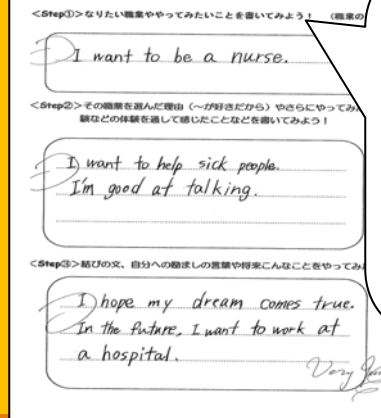 <Step①>なりたい職業ややってみたいことを書いてみよう！ （職業の
I want to be a nurse.
<Step②>その職業を選んだ理由（～が好きだから）やさらにやってみ
験などの体験を通して感じたことなどを書いてみよう！
I want to help sick people.
I'm good at talking.
<Step③>結びの文、自分への励ましの言葉や将来こんなことをやってみ
I hope my dream comes true.
In the future, I want to work at
a hospital.
Very